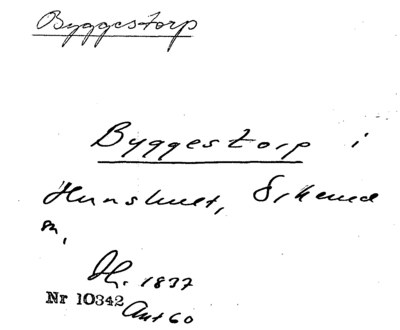 Byggestorp
Byggestorp i
Hunshult, Örkened
sn,
Th. 1837
Nr 10342
Ant 60